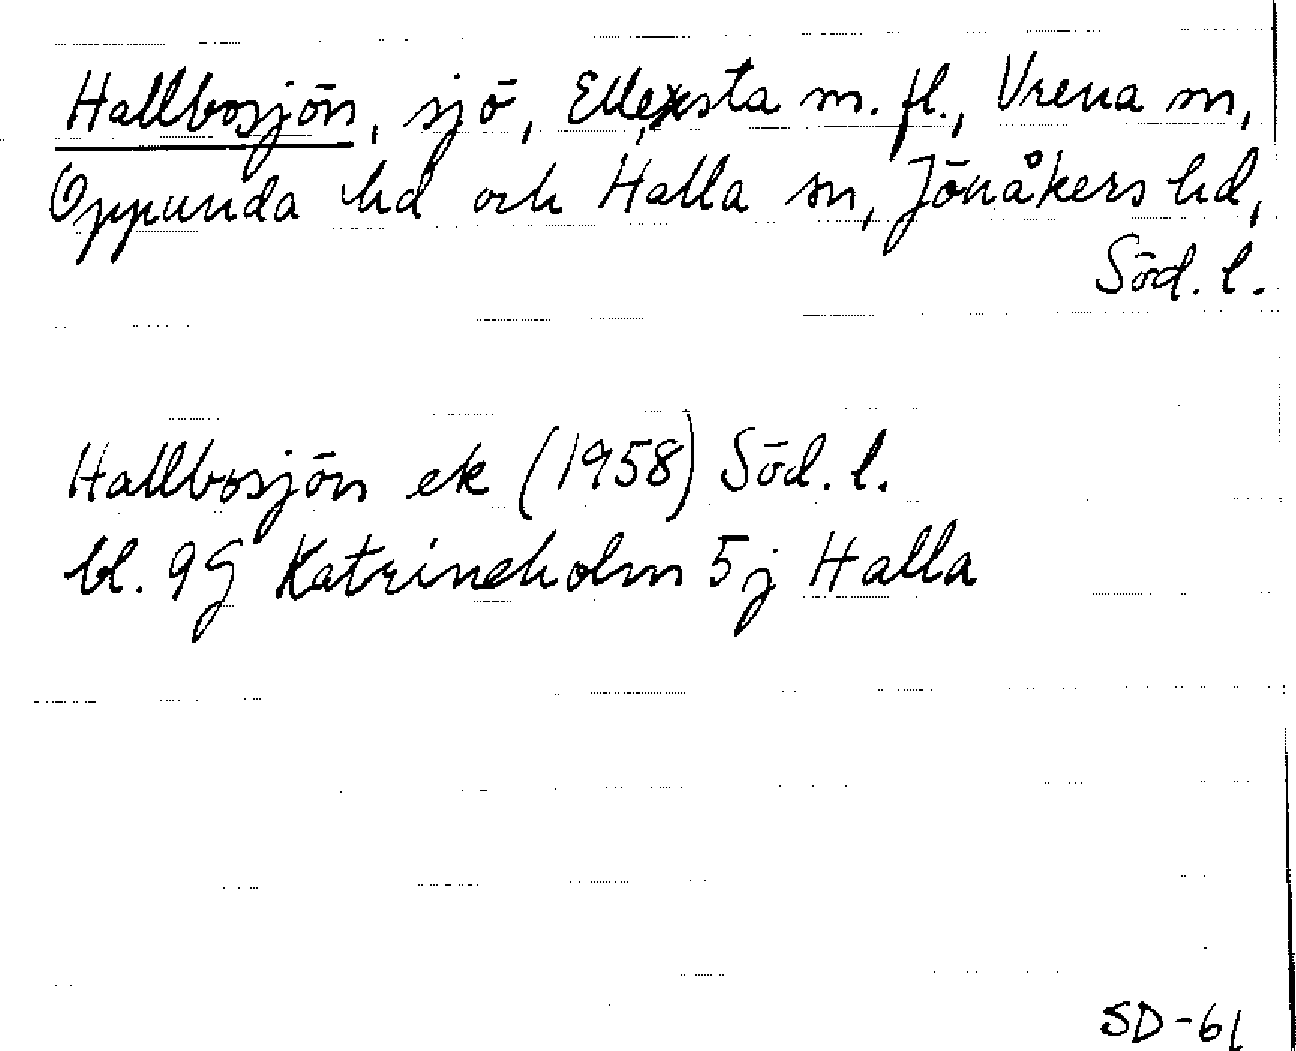 Hallbosjön, sjö, Ellexsta m. fl., Vrena sn,
Oppunda hd och Halla sn, Jönåkers hd,
Söd. l.
Hallbosjön ek (1958) Söd. l.
bl. 9G Katrineholm 5j Halla
SD-61